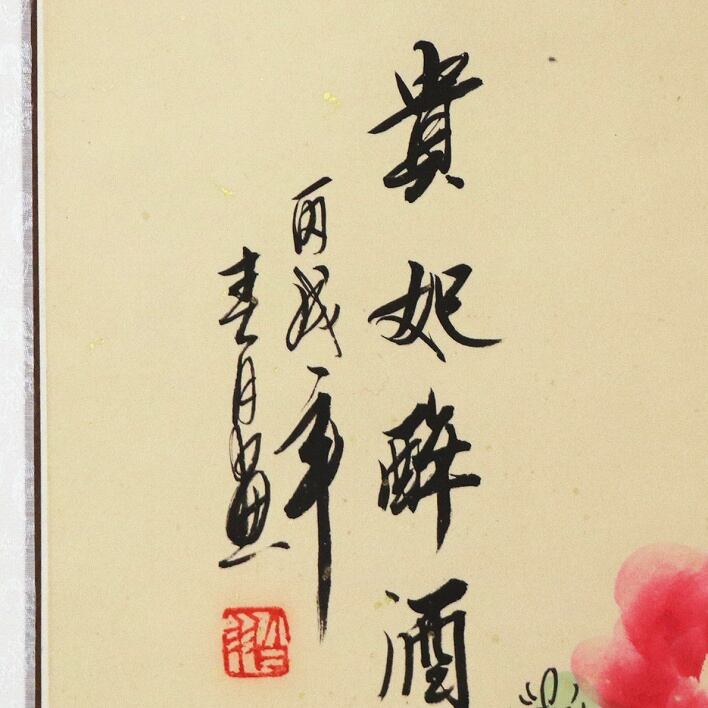 貴妃醉酒
丙戌年
春月畫